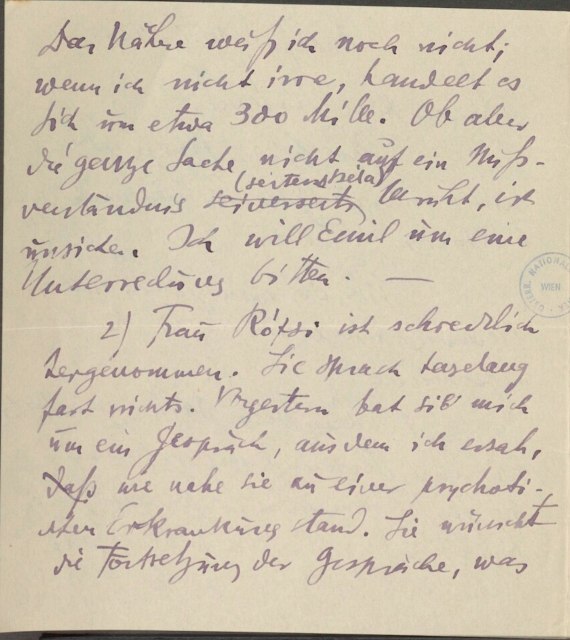 Das Nähere weiß ich noch nicht;
wenn ich nicht irre, handelt es
sich um etwa 300 Mille. Ob aber
die ganze Sache nicht auf ein Miß-
(seitens Béla)
verständnis seinerseits beruht, ist
unsicher. Ich will Emil um eine
Unterredung bitten. —
2) Frau Rótzi ist schrecklich
hergenommen. Sie sprach tagelang
fast nichts. Vorgestern bat sie mich
um ein Gespräch, aus dem ich ersah,
daß wie nahe sie an einer psychoti-
schen Erkrankung stand. Sie wünscht
die Fortsetzung der Gespräche, was
NATIONAL
WIEN